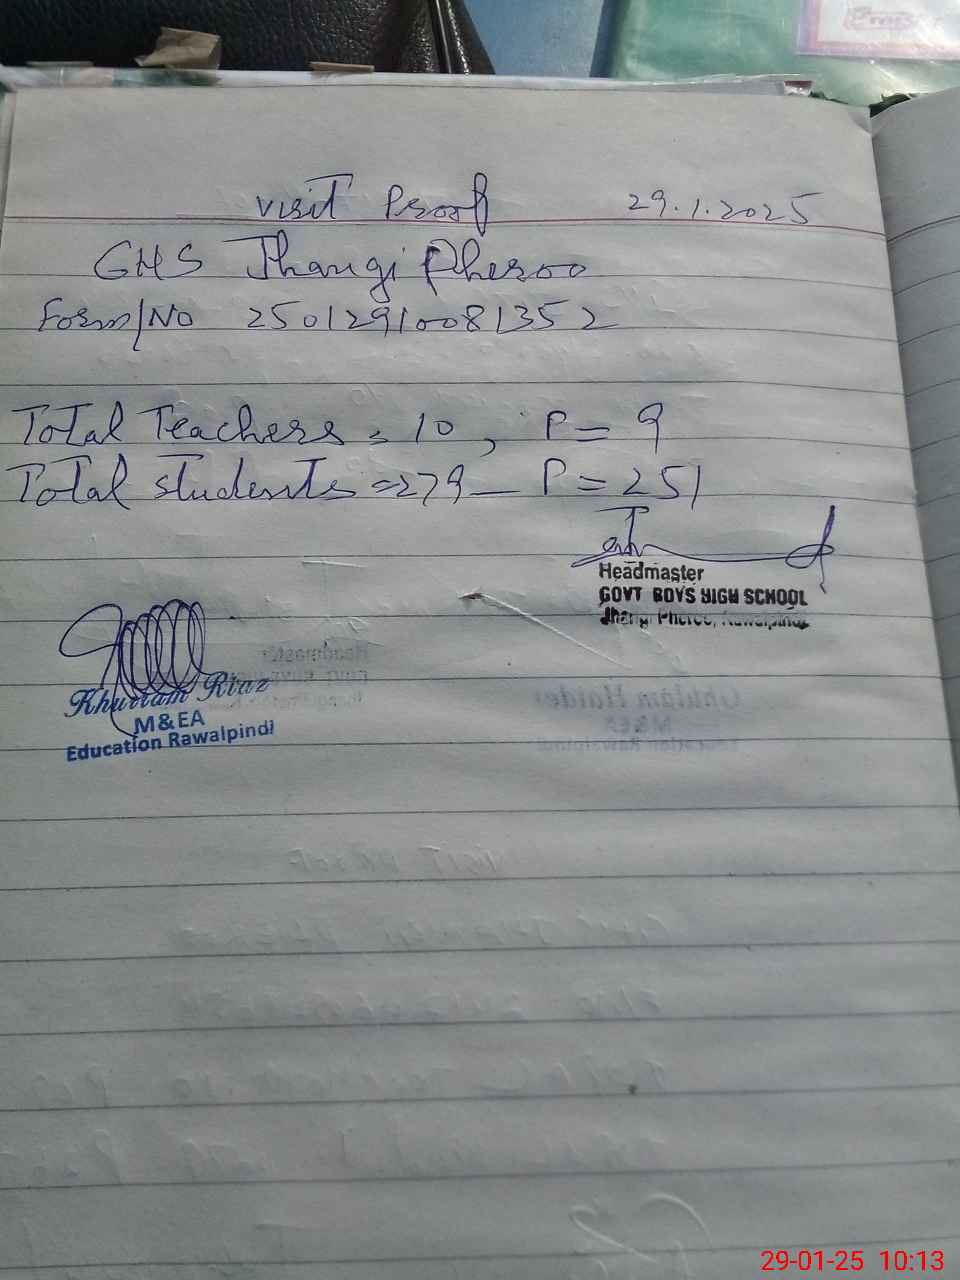 visit Proof 29.1.2025
GHS Jhangi Pheroo
Form/No 25012910081352
Total Teachers = 10, P = 9
Total students = 279 — P = 251
Headmaster
GOVT BOYS HIGH SCHOOL
Jhangi Pheroo, Rawalpindi
Khurram Riaz
M&EA
Education Rawalpindi
Ghulam Haider
M&EA
Education Rawalpindi
29-01-25 10:13